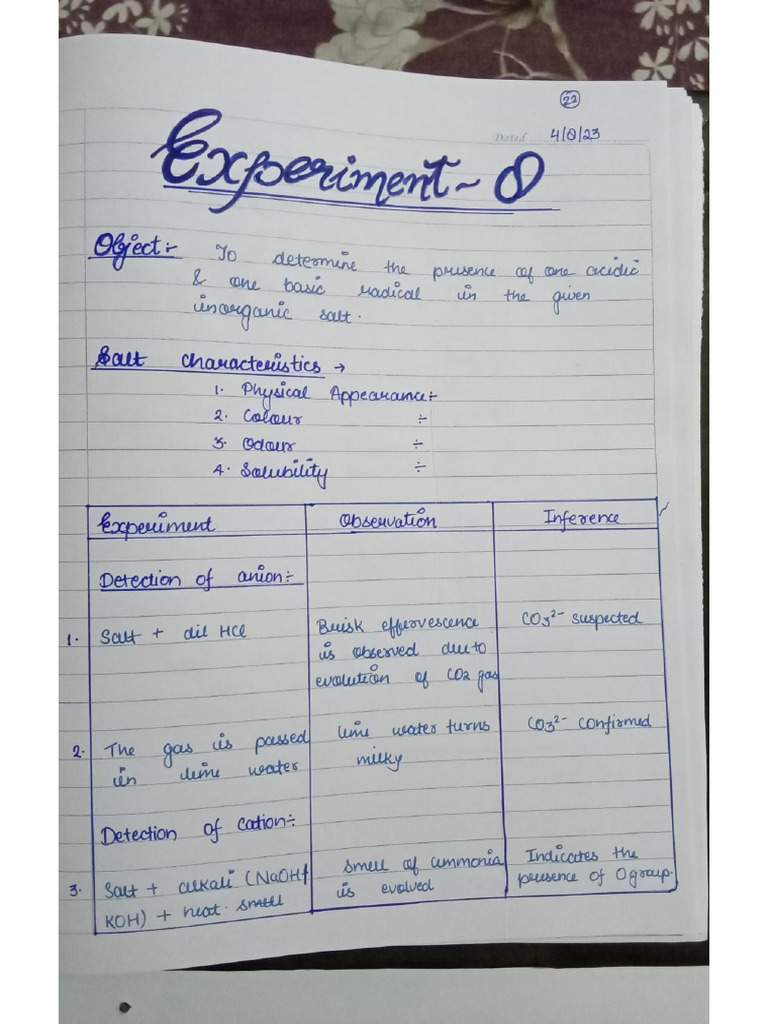 22
Dated 4/8/23
Experiment - 8
Object:- To determine the presence of one acidic
& one basic radical in the given
inorganic salt.
Salt characteristics →
1. Physical Appearance:-
2. Colour :-
3. Odour :-
4. Solubility :-
Experiment Observation Inference
Detection of anion:-
1. Salt + dil HCl
Brisk effervescence
is observed due to
evolution of CO2 gas
CO3²⁻ suspected
2. The gas is passed
in lime water
lime water turns
milky
CO3²⁻ confirmed
Detection of cation:-
3. Salt + alkali (NaOH/
KOH) + heat. smell
smell of ammonia
is evolved
Indicates the
presence of 0 group.